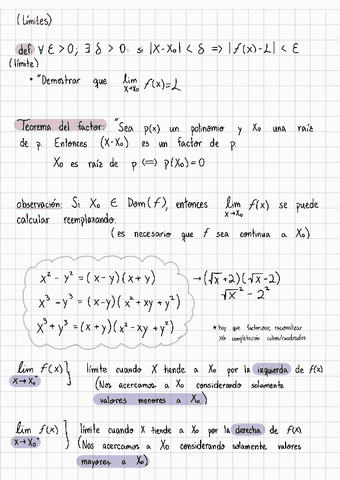 (límites)
def ∀ ε > 0; ∃ δ > 0. si |x-x₀| < δ => |f(x)-L| < ε
(límite)
• "Demostrar que lim f(x) = L
x→x₀
Teorema del factor: "Sea p(x) un polinomio y x₀ una raíz
de p. Entonces (x-x₀) es un factor de p.
x₀ es raíz de p <=> p(x₀) = 0
observación: Si x₀ ∈ Dom(f), entonces lim f(x) se puede
x→x₀
calcular reemplazando.
(es necesario que f sea continua a x₀)
x² - y² = (x-y)(x+y) → (√x+2)(√x-2)
√x² - 2²
x³ - y³ = (x-y)(x²+xy+y²)
x³ + y³ = (x+y)(x²-xy+y²)
* hay que factorizar, racionalizar
completación cubos/cuadrados
lim f(x) } límite cuando x tiende a x₀ por la izquierda de f(x)
x→x₀⁻ (Nos acercamos a x₀ considerando solamente
valores menores a x₀)
lim f(x) } límite cuando x tiende a x₀ por la derecha de f(x)
x→x₀⁺ (Nos acercamos a x₀ considerando solamente valores
mayores a x₀)